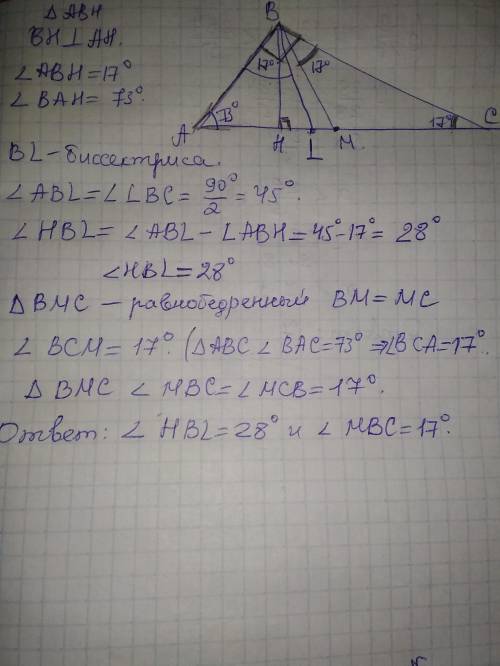 △ABH
BH⊥AH.
∠ABH=17°
∠BAH= 73°.
B
17°
17°
A
73°
H
L
M.
17°
C
BL-биссектриса.
∠ABL=∠LBC= 90°/2 =45°.
∠HBL= ∠ABL-∠ABH=45°-17°= 28°
∠HBL=28°
△BMC — равнобедренный BM=MC
∠BCM= 17°. (△ABC ∠BAC=73° ⇒∠BCA=17°.
△BMC ∠MBC=∠MCB=17°.
Ответ: ∠HBL=28° и ∠MBC=17°.